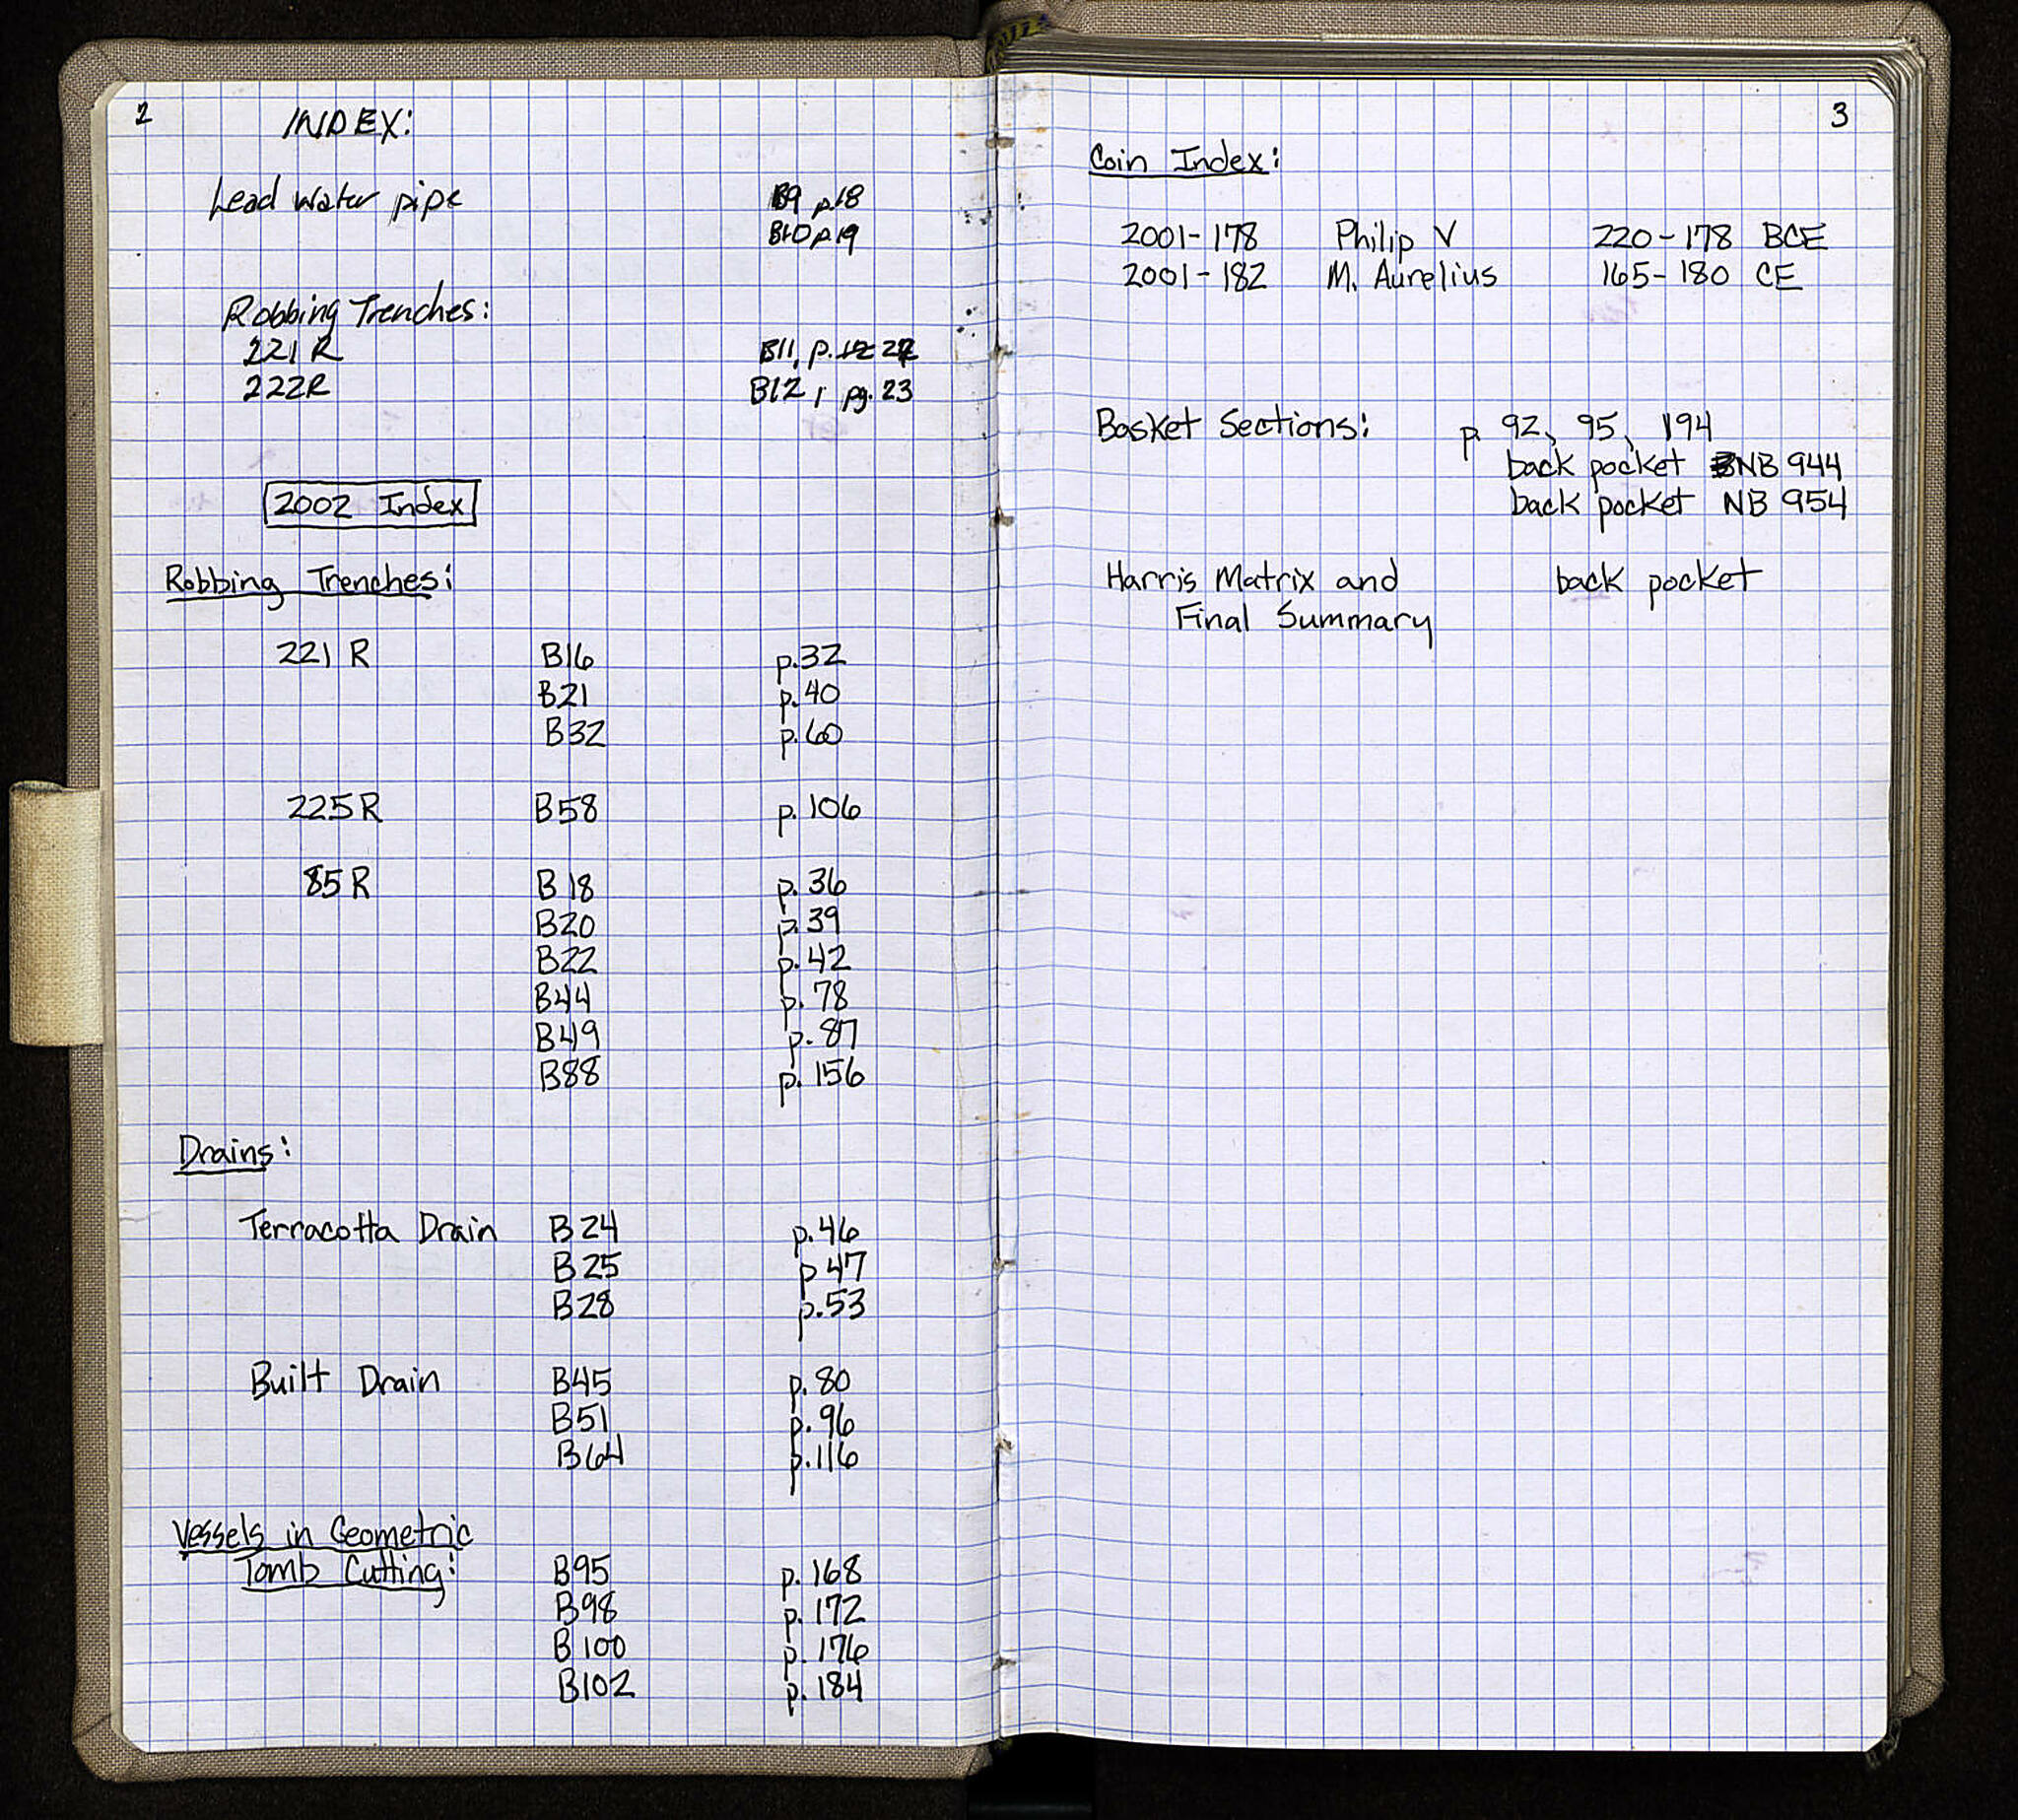 2
INDEX:
Lead water pipe B9 p.18
B10 p.19
Robbing Trenches:
221 R B11, p. 12 22
222R B12, pg. 23
2002 Index
Robbing Trenches:
221 R B16 p.32
B21 p.40
B32 p.60
225R B58 p.106
85R B18 p.36
B20 p.39
B22 p.42
B44 p.78
B49 p.87
B88 p.156
Drains:
Terracotta Drain B24 p.46
B25 p47
B28 p.53
Built Drain B45 p.80
B51 p.96
B64 p.116
Vessels in Geometric
Tomb Cutting: B95 p.168
B98 p.172
B100 p.176
B102 p.184
3
Coin Index:
2001-178 Philip V 220-178 BCE
2001-182 M. Aurelius 165-180 CE
Basket Sections: p. 92, 95, 194
back pocket NB 944
back pocket NB 954
Harris Matrix and back pocket
Final Summary